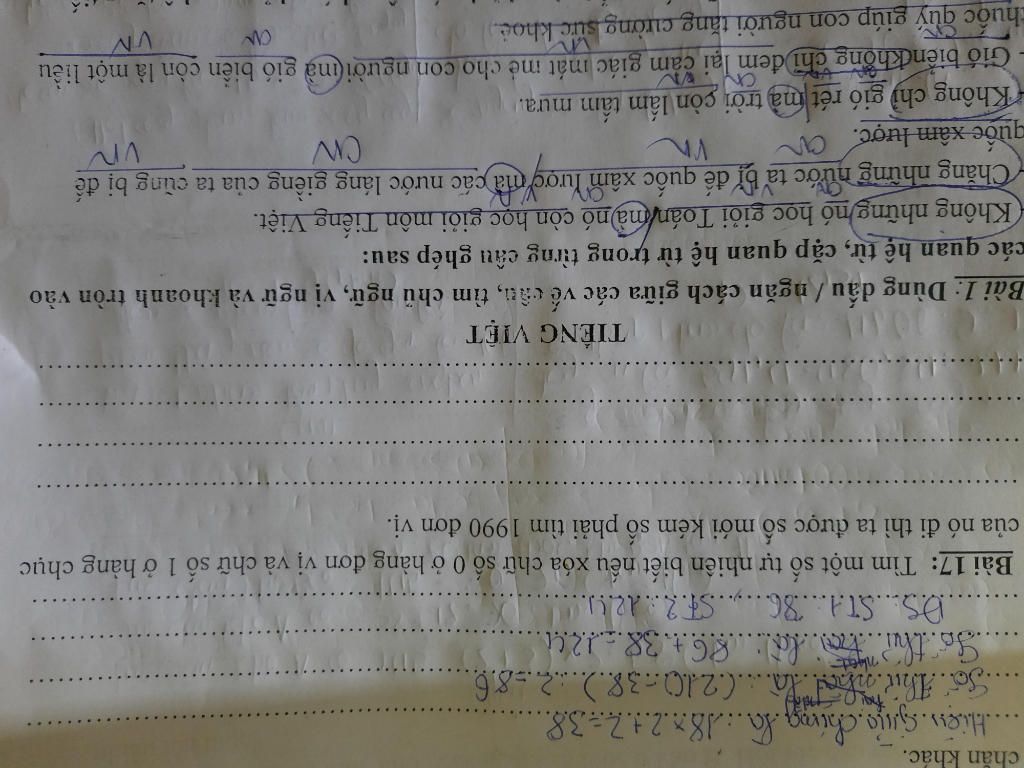 chẵn khác.
Hiệu giữa chúng là: 18 x 2 + 2 = 38
Số thứ là: (210 - 38) : 2 = 86
Số thứ là: 86 + 38 = 124
ĐS: ST1: 86, ST2: 124
Bài 17: Tìm một số tự nhiên biết nếu xóa chữ số 0 ở hàng đơn vị và chữ số 1 ở hàng chục
của nó đi thì ta được số mới kém số phải tìm 1990 đơn vị.
TIẾNG VIỆT
Bài 1: Dùng dấu / ngăn cách giữa các vế câu, tìm chủ ngữ, vị ngữ và khoanh tròn vào
các quan hệ từ, cặp quan hệ từ trong từng câu ghép sau:
- Không những nó học giỏi Toán / mà nó còn học giỏi môn Tiếng Việt.
CN VN CN VN
- Chẳng những nước ta bị đế quốc xâm lược / mà các nước láng giềng của ta cũng bị đế
CN VN CN VN
quốc xâm lược.
- Không chỉ gió rét / mà trời còn lấm tấm mưa.
CN VN CN VN
- Gió biển không chỉ đem lại cảm giác mát mẻ cho con người mà gió biển còn là một liều
CN VN CN VN
thuốc quý giúp con người tăng cường sức khoẻ.